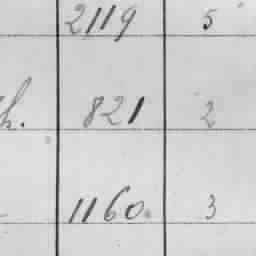 2119 5
h. 821 2
1160. 3